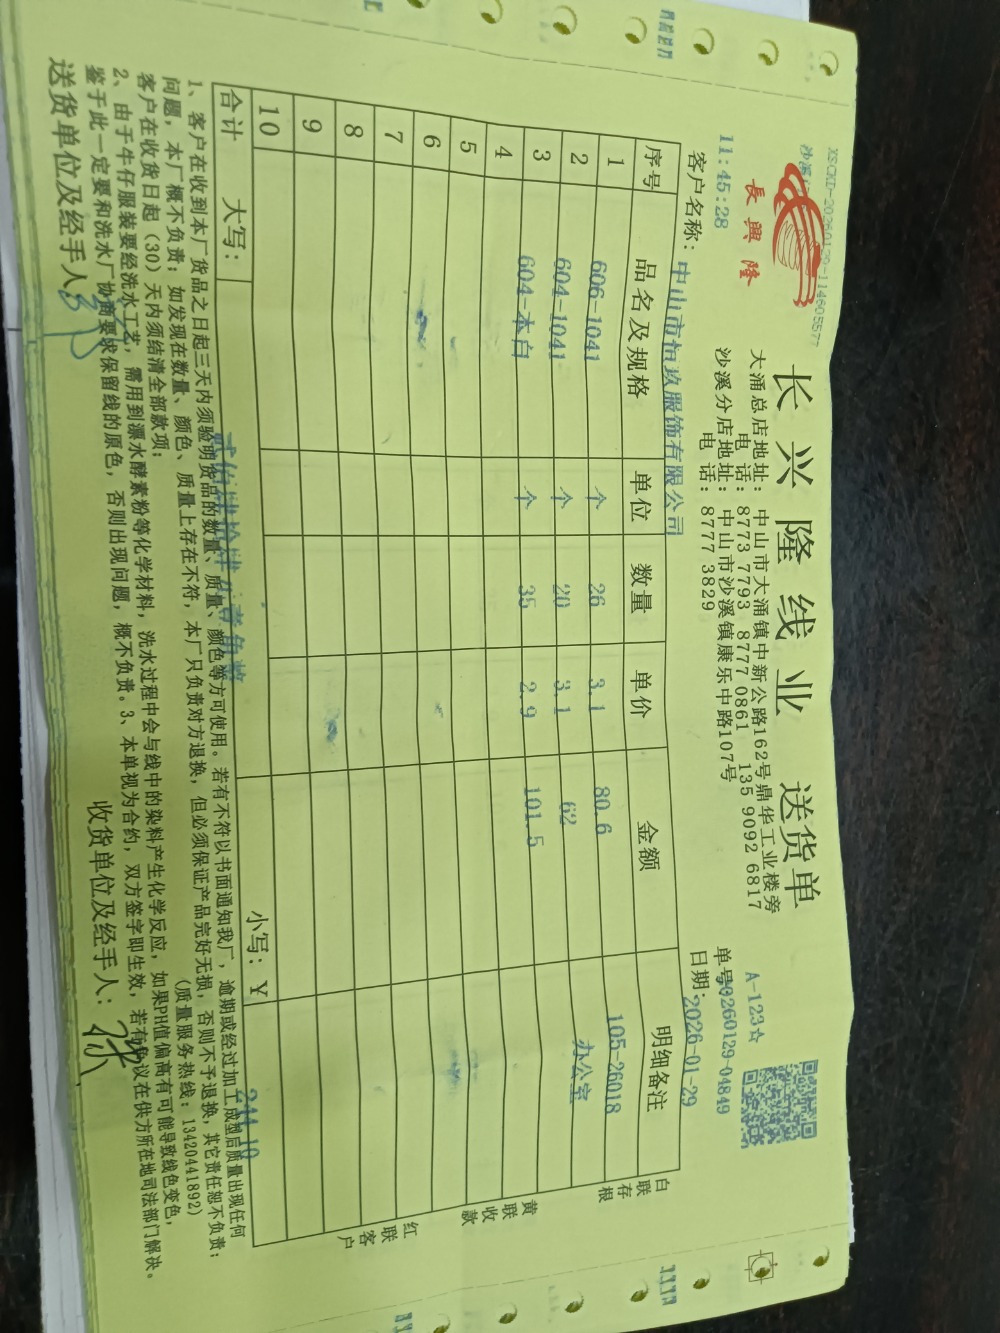 XSCKD-20260129-114605577
長興隆
长兴隆线业 送货单
A-123☆
大涌总店地址：中山市大涌镇中新公路162号鼎华工业楼旁
电 话：8773 7793 8777 0861 135 9092 6817
沙溪分店地址：中山市沙溪镇康乐中路107号
电 话：8777 3829
11:45:28
单号 20260129-04849
客户名称：中山市恒玖服饰有限公司
日期：2026-01-29
序号 品名及规格 单位 数量 单价 金额 明细备注
1 606-1041 个 26 3.1 80.6 105-26018
2 604-1041 个 20 3.1 62 办公室
3 604-本白 个 35 2.9 101.5
4
5
6
7
8
9
10
合计 大写：贰佰肆拾肆元壹角整 小写：￥ 244.10
白联存根
黄联收款
红联客户
1、客户在收到本厂货品之日起三天内须验明货品的数量、质量、颜色等方可使用。若有不符以书面通知我厂，逾期或经过加工成型后质量出现任何
问题，本厂概不负责；如发现在数量、颜色、质量上存在不符，本厂只负责对方退换，但必须保证产品完好无损，否则不予退换，其它责任恕不负责；
客户在收货日起（30）天内须结清全部款项； （质量服务热线：13420441892）
2、由于牛仔服装要经洗水工艺，需用到漂水酵素粉等化学材料，洗水过程中会与线中的染料产生化学反应，如果PH值偏高有可能导致线色变色，
鉴于此一定要和洗水厂协商要求保留线的原色，否则出现问题，概不负责。3、本单视为合约，双方签字即生效，若有争议在供方所在地司法部门解决。
送货单位及经手人：
收货单位及经手人：